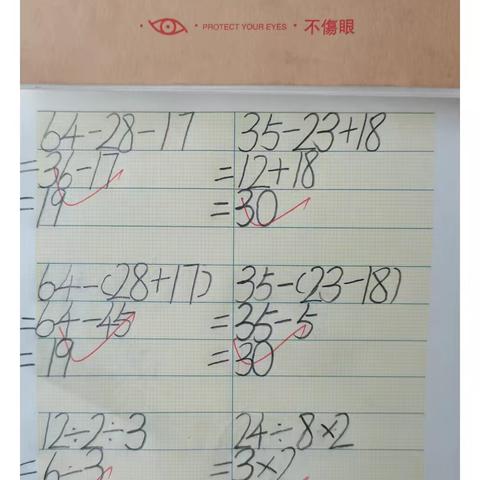 PROTECT YOUR EYES · 不傷眼
64-28-17
=36-17
=19
35-23+18
=12+18
=30
64-(28+17)
=64-45
=19
35-(23-18)
=35-5
=30
12÷2÷3
=6÷3
24÷8×2
=3×2